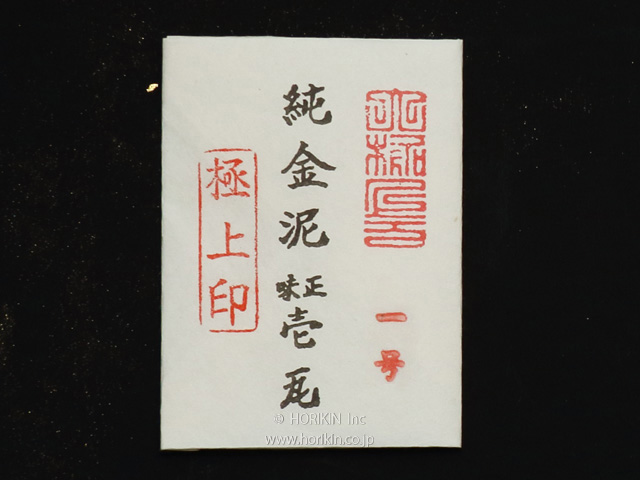 一号
純金泥正味壱瓦
極上印
© HORIKIN Inc
www.horikin.co.jp